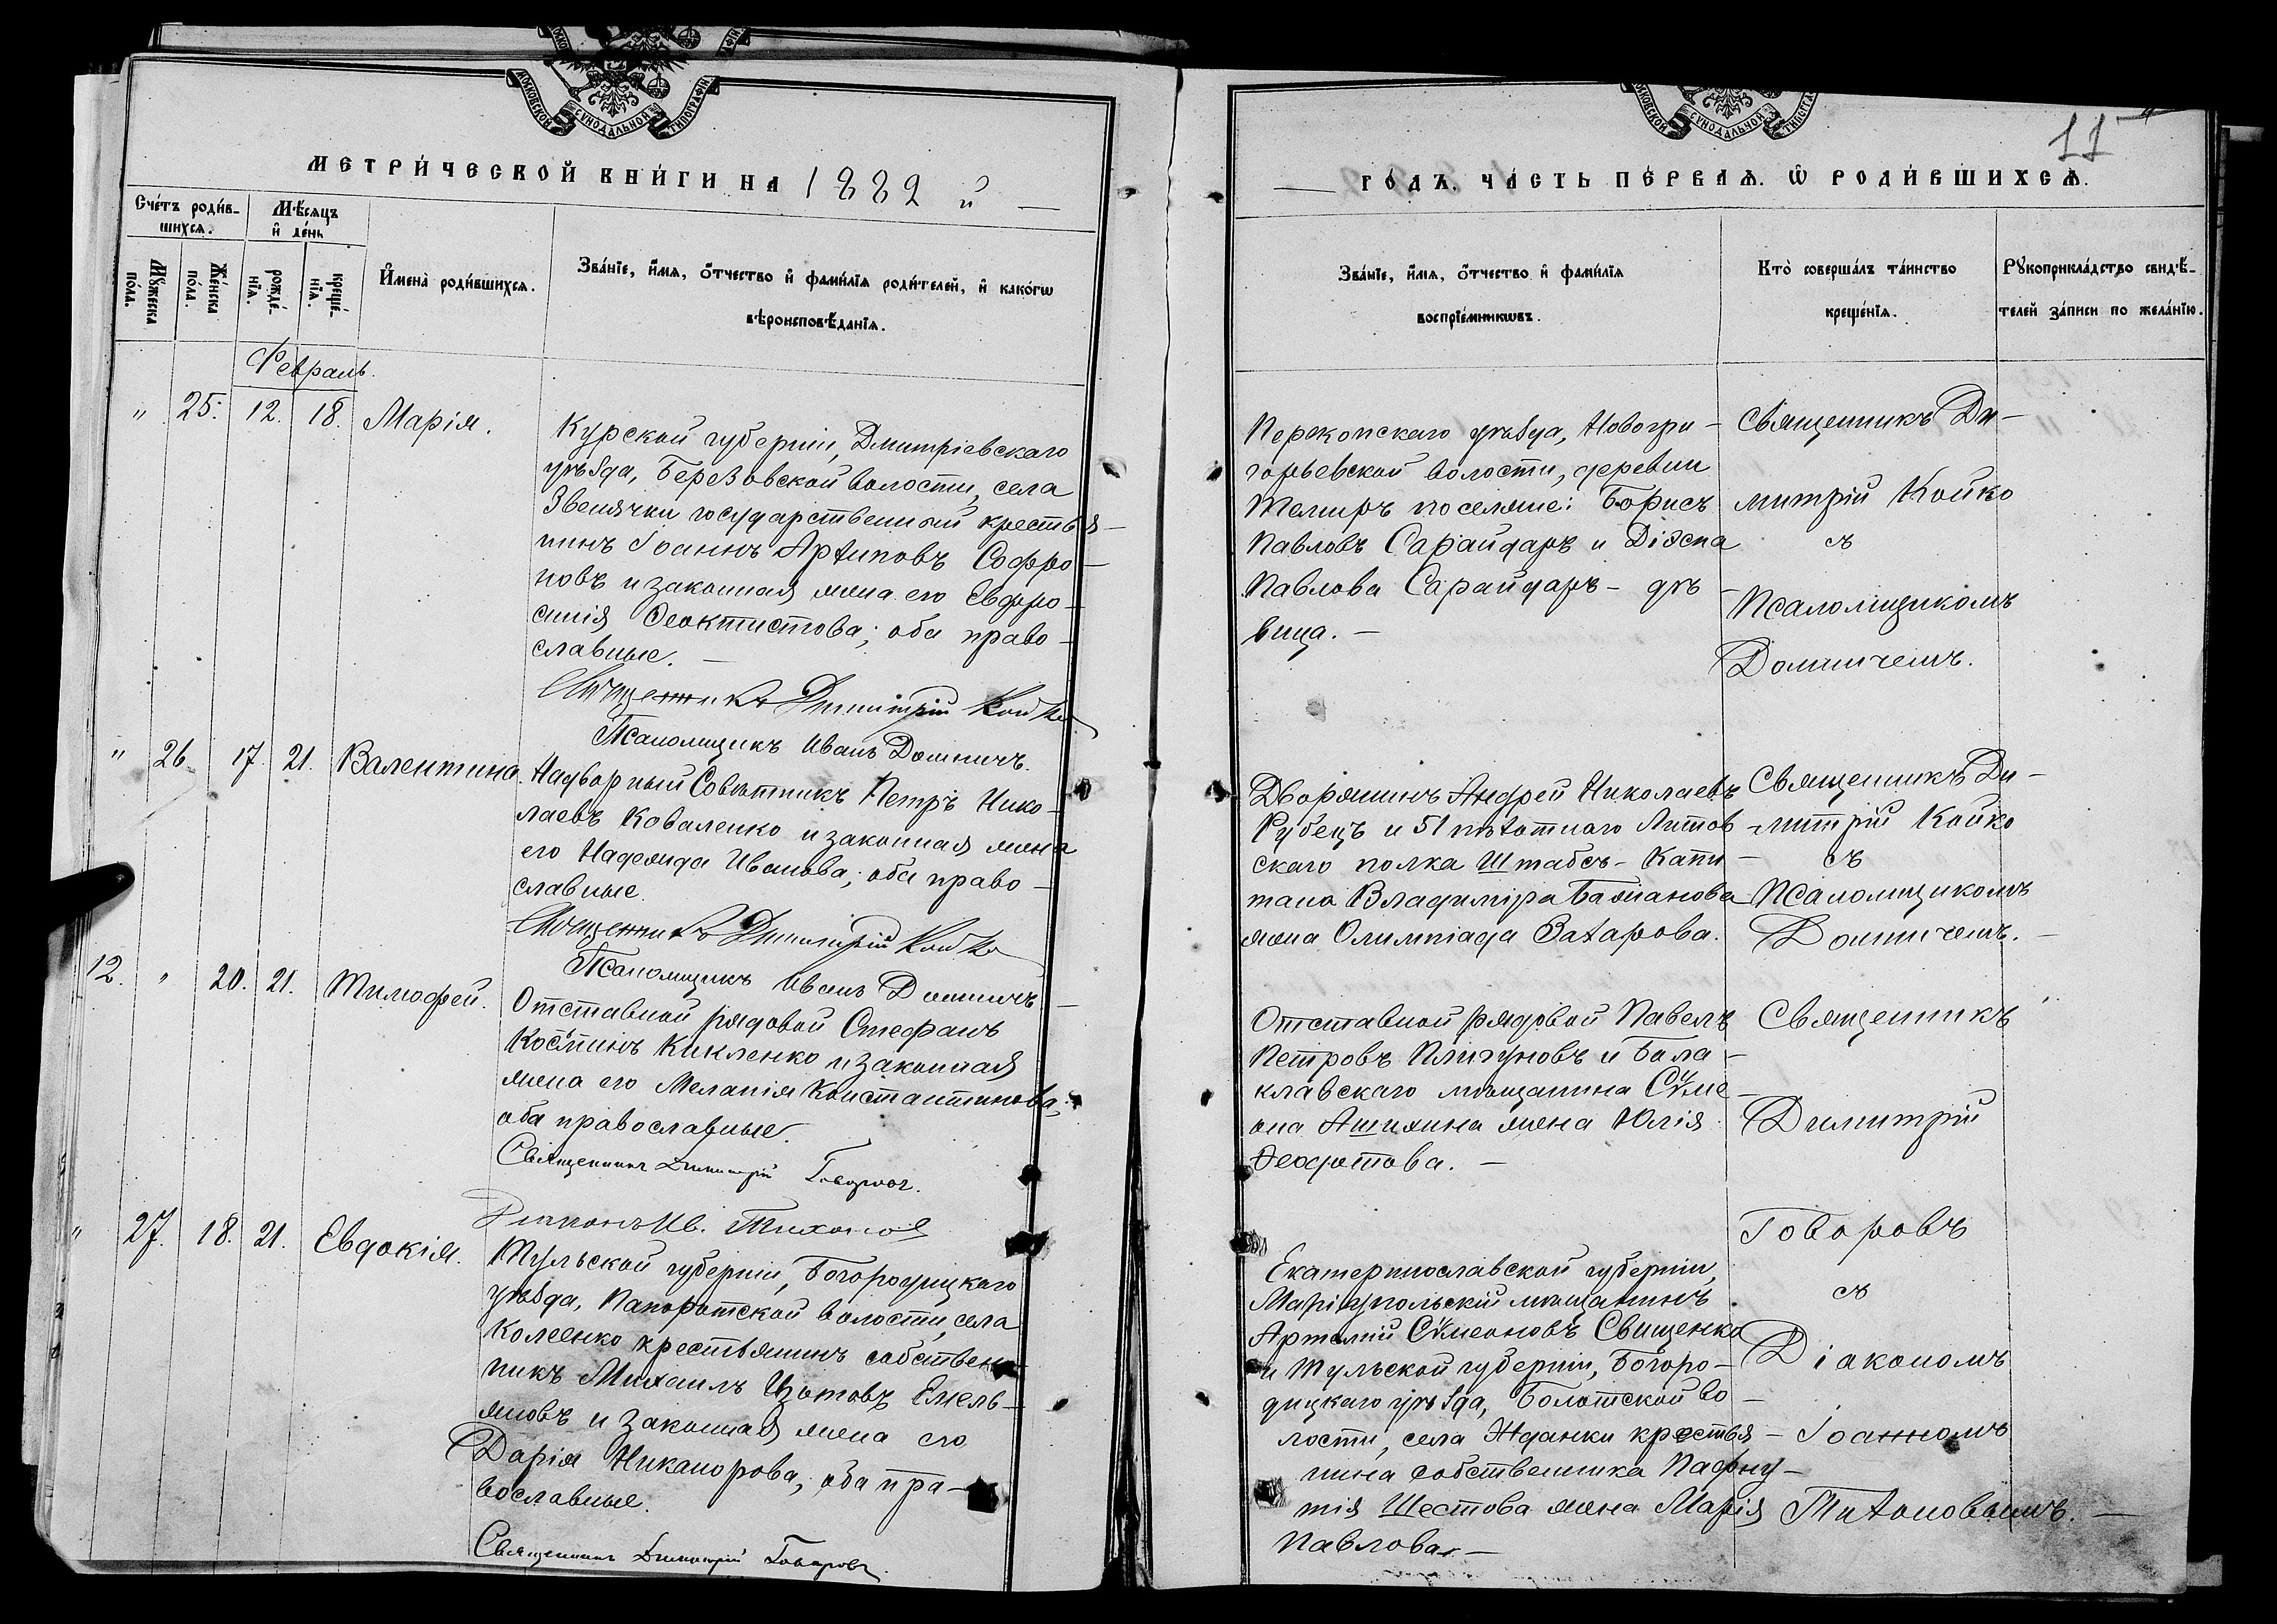 МОСКОВСКОЙ СѴНОДАЛЬНОЙ ТИПОГРАФІИ
МЕТРИ́ЧЕСКОЙ КНИ́ГИ НА 1882 й
Сче́тъ роди́в-
шихся.
Мѣ́сяцъ
и҆ де́нь
Мꙋ́жеска
по́ла.
Же́нска
по́ла.
рожде́-
нїѧ.
креще́-
нїѧ.
И҆мена̀ роди́вшихсѧ.
Зва́нїе, и҆́мѧ, о҆́тчество и҆ фами́лїѧ роди́телей, и҆ како́гѡ
вѣроисповѣ́данїѧ.
Февраль
" 25. 12. 18. Марія.
Курской губерніи, Дмитріевскаго
уѣзда, Березовской волости, села
Звенячки государственный крестья-
нинъ Іоаннъ Архиповъ Софро-
новъ и законная жена его Евфро-
синія Ѳеоктистова; оба право-
славные.
Священникъ Димитрій Койко
Псаломщикъ Иванъ Домничъ.
" 26. 17. 21. Валентина.
Надворный Совѣтникъ Петръ Нико-
лаевъ Коваленко и законная жена
его Надежда Иванова; оба право-
славные.
Священникъ Димитрій Койко
Псаломщикъ Иванъ Домничъ
12. " 20. 21. Тимофей.
Отставной рядовой Стефанъ
Костинъ Кикленко и законная
жена его Меланія Константинова;
оба православные.
Священникъ Димитрій Говоровъ.
Діаконъ Ив. Тихонов
" 27. 18. 21. Евдокія.
Тульской губерніи, Богородицкаго
уѣзда, Папоротской волости, села
Колеенко крестьянинъ собствен-
никъ Михаилъ Изотовъ Емель-
яновъ и законная жена его
Дарія Никанорова; оба пра-
вославные.
Священникъ Димитрій Говоровъ.
МОСКОВСКОЙ СѴНОДАЛЬНОЙ ТИПОГРАФІИ
11
ГО́ДЪ. ЧА́СТЬ ПЕ́РВАѦ. Ѡ҆ РОДИ́ВШИХСѦ.
Зва́нїе, и҆́мѧ, о҆́тчество и҆ фами́лїѧ
воспрїе́мникѡвъ.
Кто̀ соверша́лъ та́инство
креще́нїѧ.
Рꙋкоприкла́дство свидѣ́-
телей за́писи по жела́нїю.
Перекопскаго уѣзда, Новогри-
горьевской волости, деревни
Темиръ поселяне: Борисъ
Павловъ Сарайдаръ и
Павлова Сарайдаръ - дѣ-
вица.
Священникъ Ди-
митрій Койко
съ
Псаломщикомъ
Домничемъ.
Дворянинъ Андрей Николаевъ
Рубецъ и 51 пѣхотнаго Литов-
скаго полка Штабсъ-Капи-
тана Владиміра Бажанова
жена Олимпіада Захарова.
Священникъ Ди-
митрій Койко
съ
Псаломщикомъ
Домничемъ.
Отставной рядовой Павелъ
Петровъ Плигуновъ и Бала-
клавскаго мѣщанина Сѵме-
она Ашихина жена Юлія
Ѳеодотова.
Священникъ
Димитрій
Говоровъ
съ
Діакономъ
Іоанномъ
Тихоновымъ.
Екатеринославской губерніи,
Маріупольскій мѣщанинъ
Артемій Сѵмеоновъ Свищенко
и Тульской губерніи, Богоро-
дицкаго уѣзда, Болотской во-
лости, села Жданки крестья-
нина собственника Пафну-
тія Шестова жена Марія
Павлова.